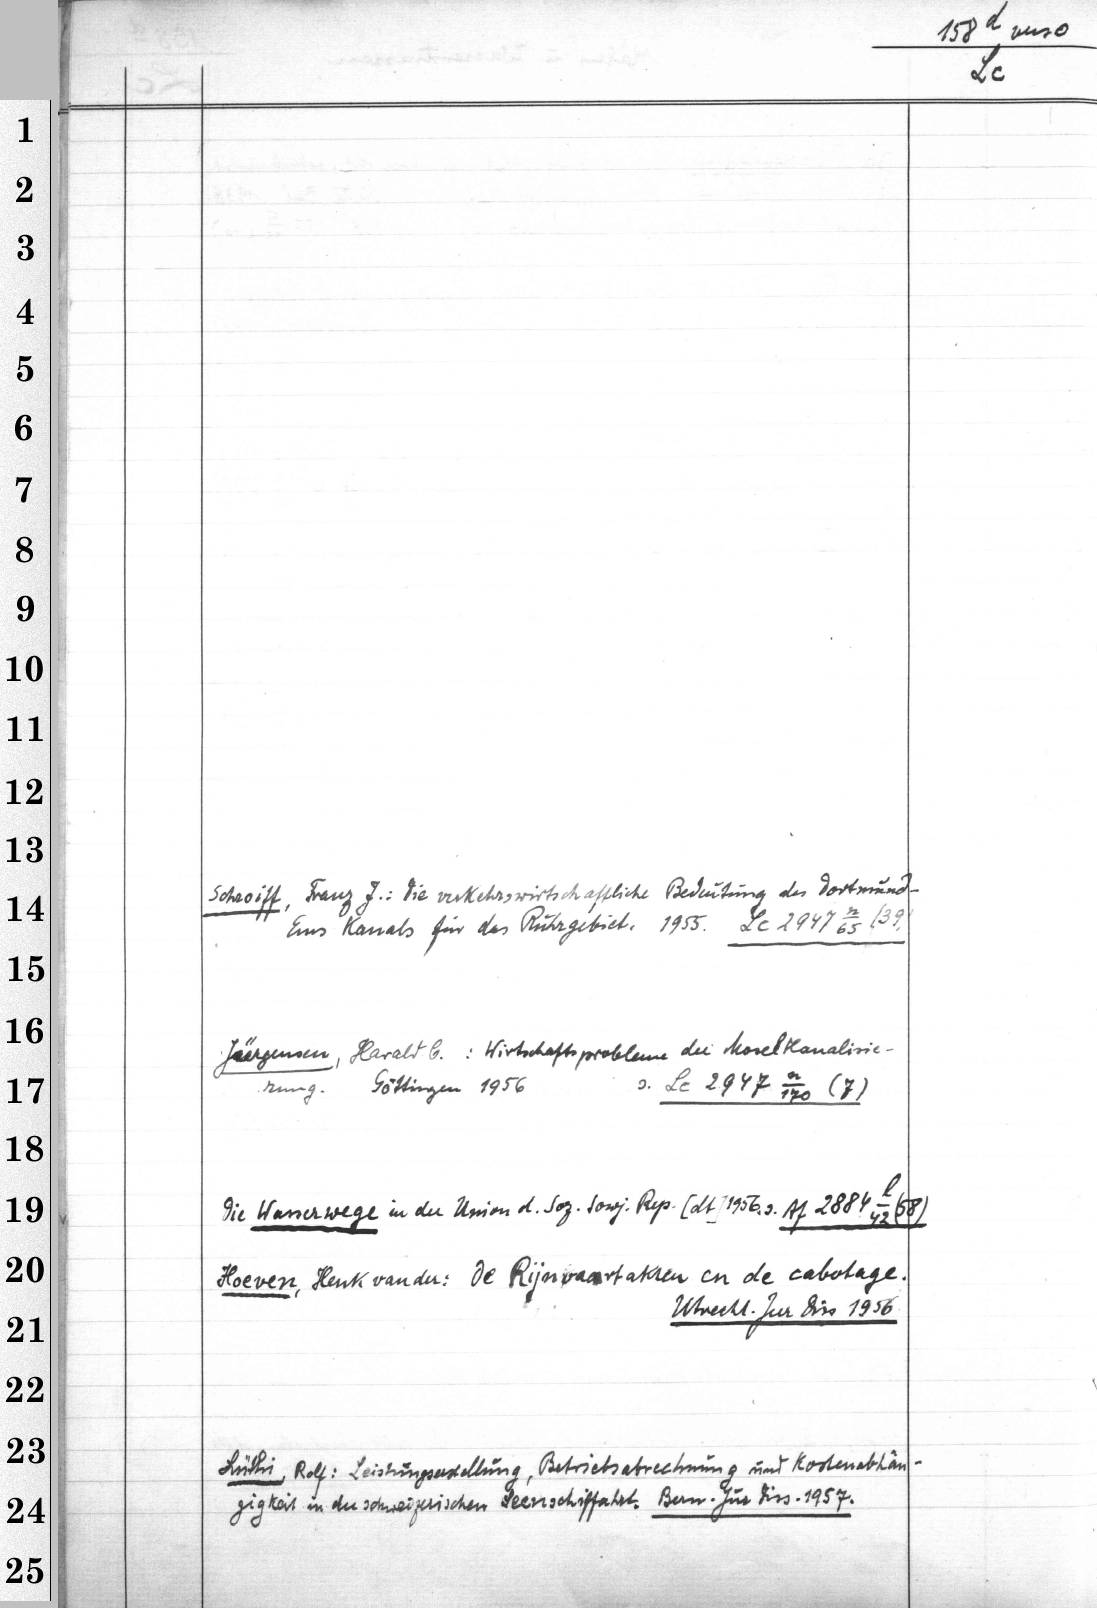 158 d verso
Lc
1
2
3
4
5
6
7
8
9
10
11
12
13
14
15
16
17
18
19
20
21
22
23
24
25
Schroiff, Franz J.: Die verkehrswirtschaftliche Bedeutung des Dortmund-
Ems Kanals für das Ruhrgebiet. 1955. Lc 2947 n/65 (39)
Jüergensen, Harald C. : Wirtschaftsprobleme der Moselkanalisie-
rung. Göttingen 1956 s. Lc 2947 n/170 (7)
Die Wasserwege in der Union d. Soz. Sowj. Rep. [dt] 1956. s. Af 2884 l/42 (58)
Hoeven, Henk van der: De Rijnvaartakten en de cabotage.
Utrecht. Jur Diss 1956
Lüthi, Rolf: Leistungserstellung, Betriebsabrechnung und Kostenabhän-
gigkeit in der schweizerischen Seenschiffahrt. Bern. Jur Diss. 1957.